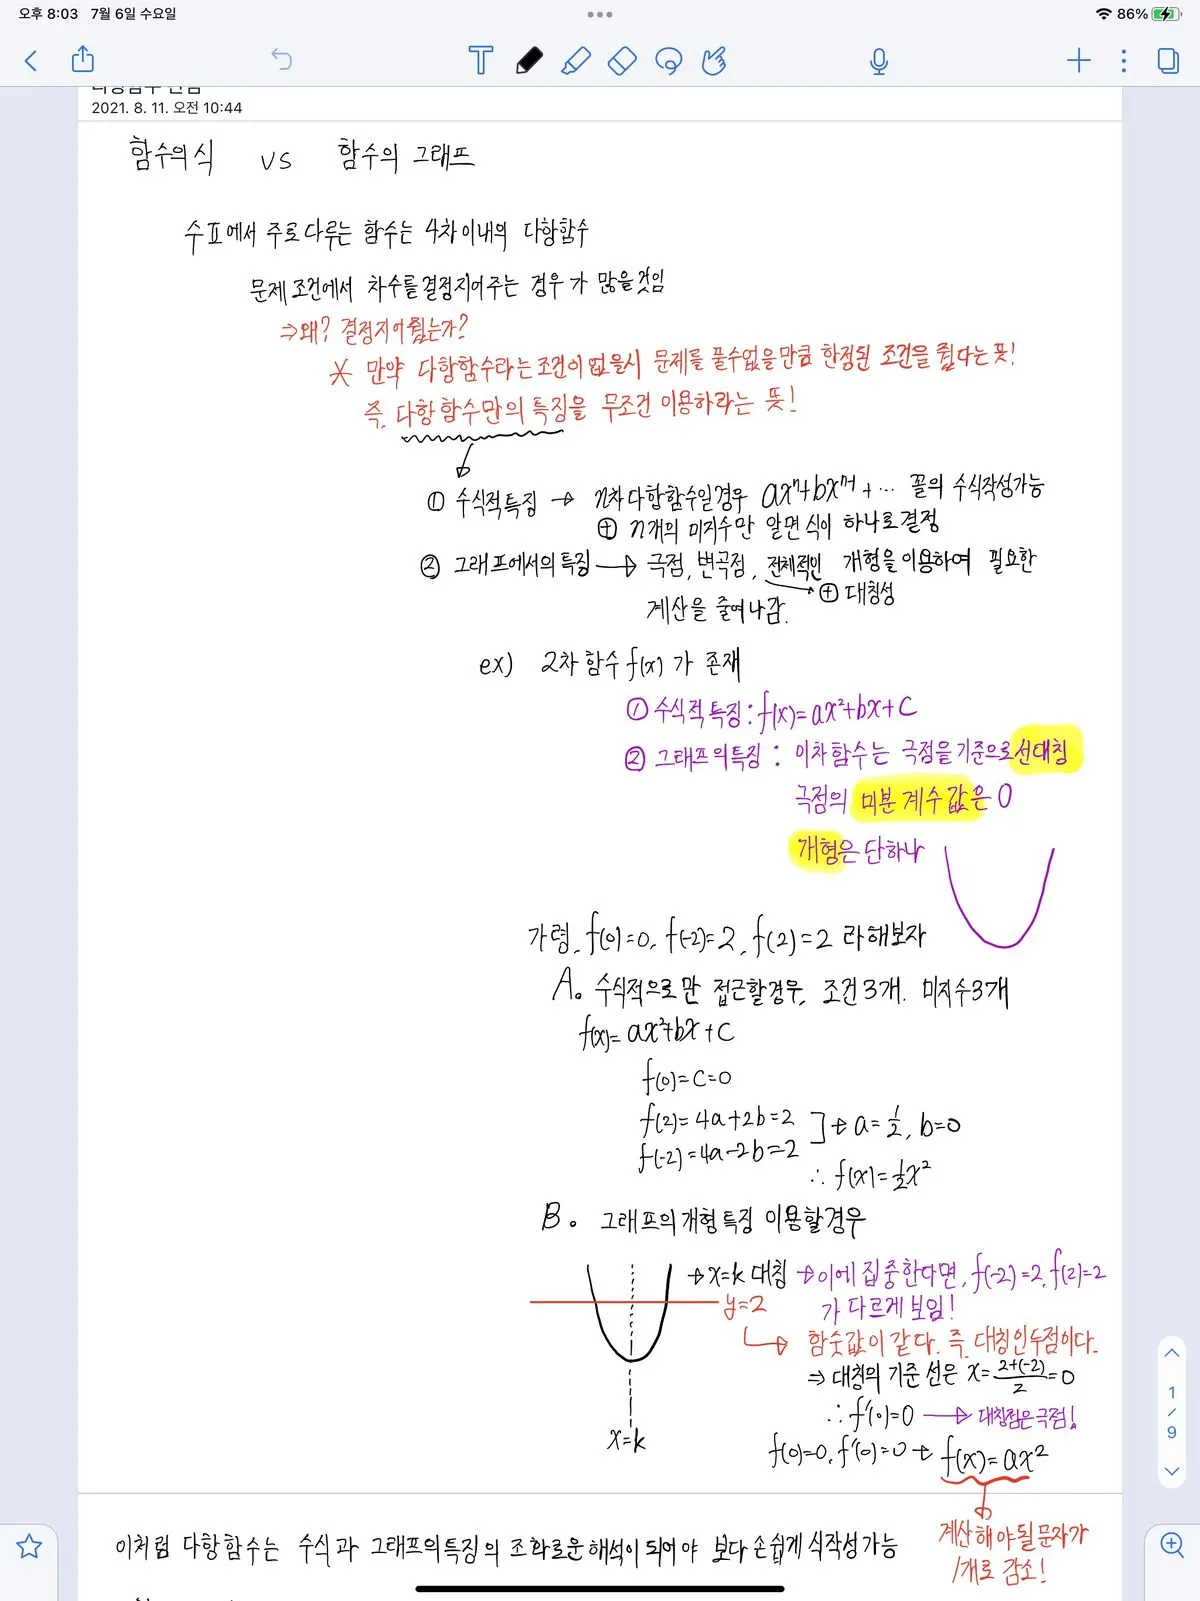 오후 8:03 7월 6일 수요일
86%
2021. 8. 11. 오전 10:44
함수의 식 vs 함수의 그래프
수표에서 주로 다루는 함수는 4차이내의 다항함수
문제 조건에서 차수를 결정지어주는 경우가 많을것임
⇒ 왜? 결정지어줬는가?
* 만약 다항함수라는 조건이 없을시 문제를 풀수없을만큼 한정된 조건을 줬다는 뜻!
즉, 다항함수만의 특징을 무조건 이용하라는 뜻!
① 수식적특징 → n차 다항함수일경우 axⁿ+bxⁿ⁻¹+… 꼴의 수식작성가능
⊕ n개의 미지수만 알면 식이 하나로 결정
② 그래프에서의 특징 → 극점, 변곡점, 전체적인 개형을 이용하여 필요한
⊕ 대칭성
계산을 줄여나감.
ex) 2차함수 f(x)가 존재
① 수식적 특징: f(x)=ax²+bx+c
② 그래프의특징 : 이차함수는 극점을 기준으로 선대칭
극점의 미분계수값은 0
개형은 단하나
가령, f(0)=0, f(-2)=2, f(2)=2 라해보자
A. 수식적으로만 접근할경우, 조건3개. 미지수3개
f(x)=ax²+bx+c
f(0)=c=0
f(2)=4a+2b=2
f(-2)=4a-2b=2
] → a=1/2, b=0
∴ f(x)=1/2x²
B. 그래프의 개형 특징 이용할경우
→ x=k 대칭 → 이에 집중한다면, f(-2)=2, f(2)=2
가 다르게 보임!
y=2
→ 함숫값이 같다. 즉, 대칭인두점이다.
⇒ 대칭의 기준 선은 x=(2+(-2))/2=0
∴ f'(0)=0 → 대칭점은극점!
x=k
f(0)=0, f'(0)=0 → f(x)=ax²
계산해야될문자가
1개로 감소!
1
/
9
이처럼 다항함수는 수식과 그래프의특징의 조화로운해석이 되어야 보다 손쉽게 식작성가능